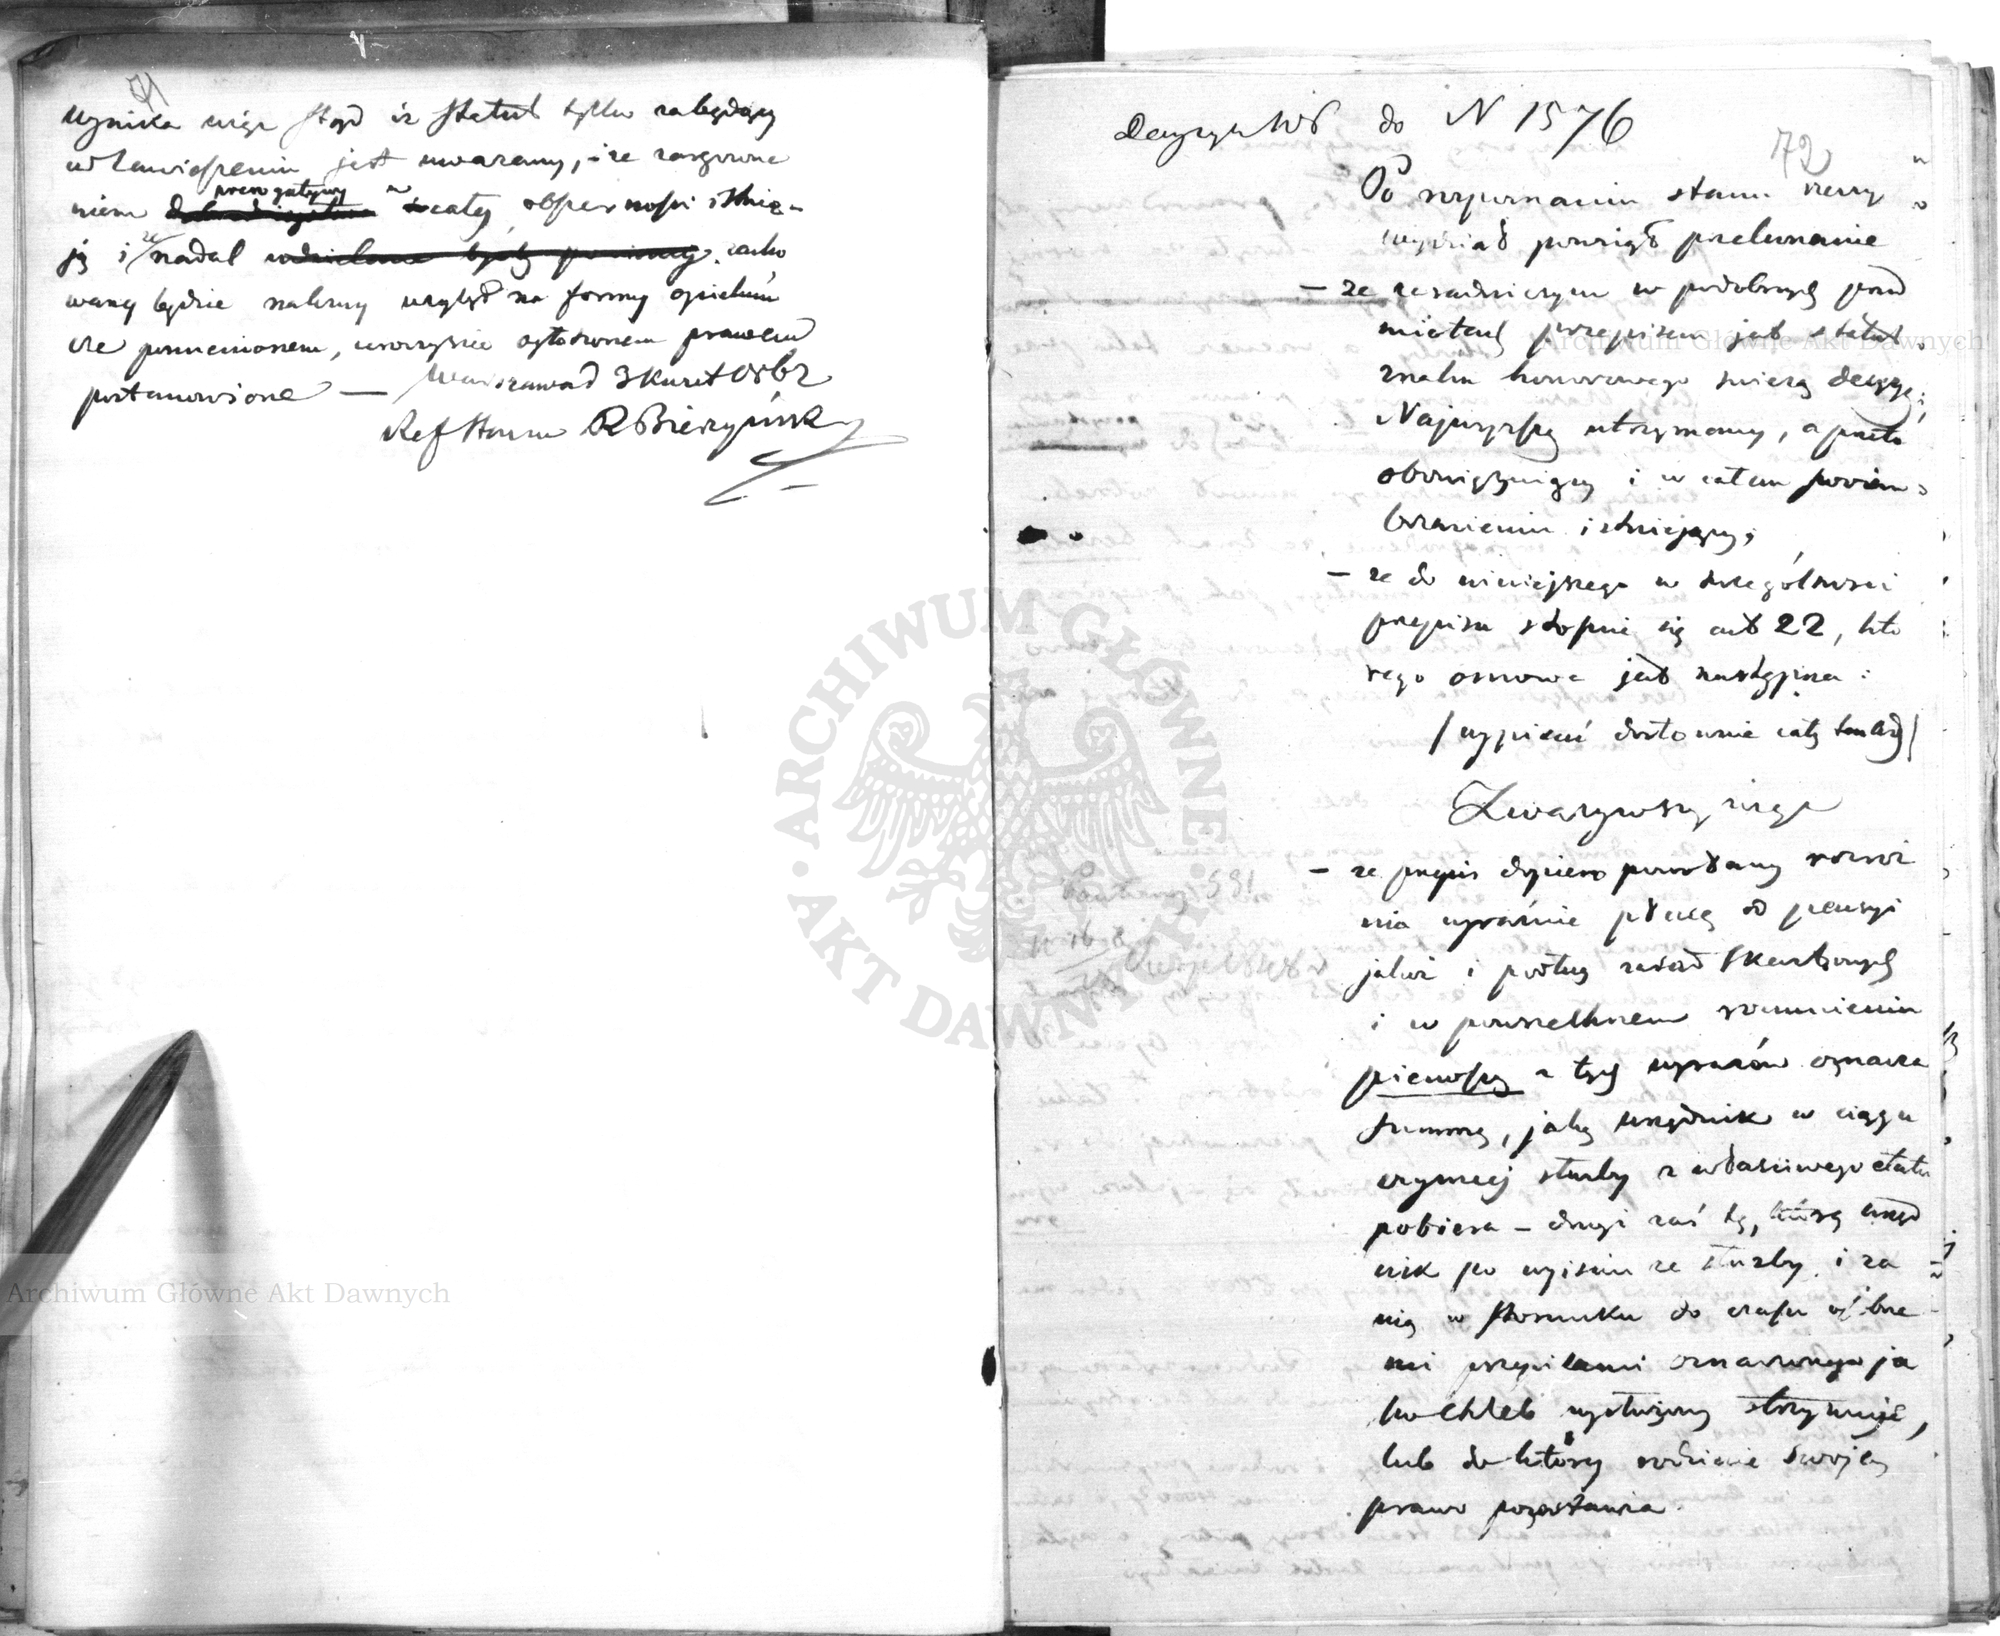 71
wynika więc stąd iż statut tylko za będący
w zawieszeniu jest uważany, i że
niem prerogatywy w całej obszerności istnie-
ją i że nadal zacho
wany będzie należny wzgląd na formy
postanowione — Warszawa d 3 Kwiet 1862
Ref Stanu R Bierzyński
do N 1576
72
Po rozpoznaniu stanu rzeczy
wydział powziął przekonanie
– że zasadniczym w podobnych przed
miotach przepisem jest statut
znaku honorowego świeżą decyzją
Najwyższą utrzymany, a przeto
obowiązujący i w całem
brzmieniu istniejący;
– że do niniejszego w szczególności
przepisu stosuje się art 22, któ
rego osnowa jest następna:
/ wypisać dosłownie cały /
Zważywszy więc
– że przepis dopiero powołany rozróż
nia wyraźnie płacę od pensyi
jakoż i podług zasad skarbowych
i w powszechnem rozumieniu
pierwszy z tych wyrazów oznacza
summę, jaką urzędnik w ciągu
czynnej służby z właściwego etatu
pobiera – drugi zaś tę, którą urzęd
nik po wyjściu ze służby i za
nią w stosunku do czasu
mi przepisami oznaczonego ja
ko chleb wysłużony otrzymuje,
lub do której rodzinie swojej
prawo pozostawia.
Archiwum Główne Akt Dawnych
Archiwum Główne Akt Dawnych
ARCHIWUM GŁÓWNE AKT DAWNYCH